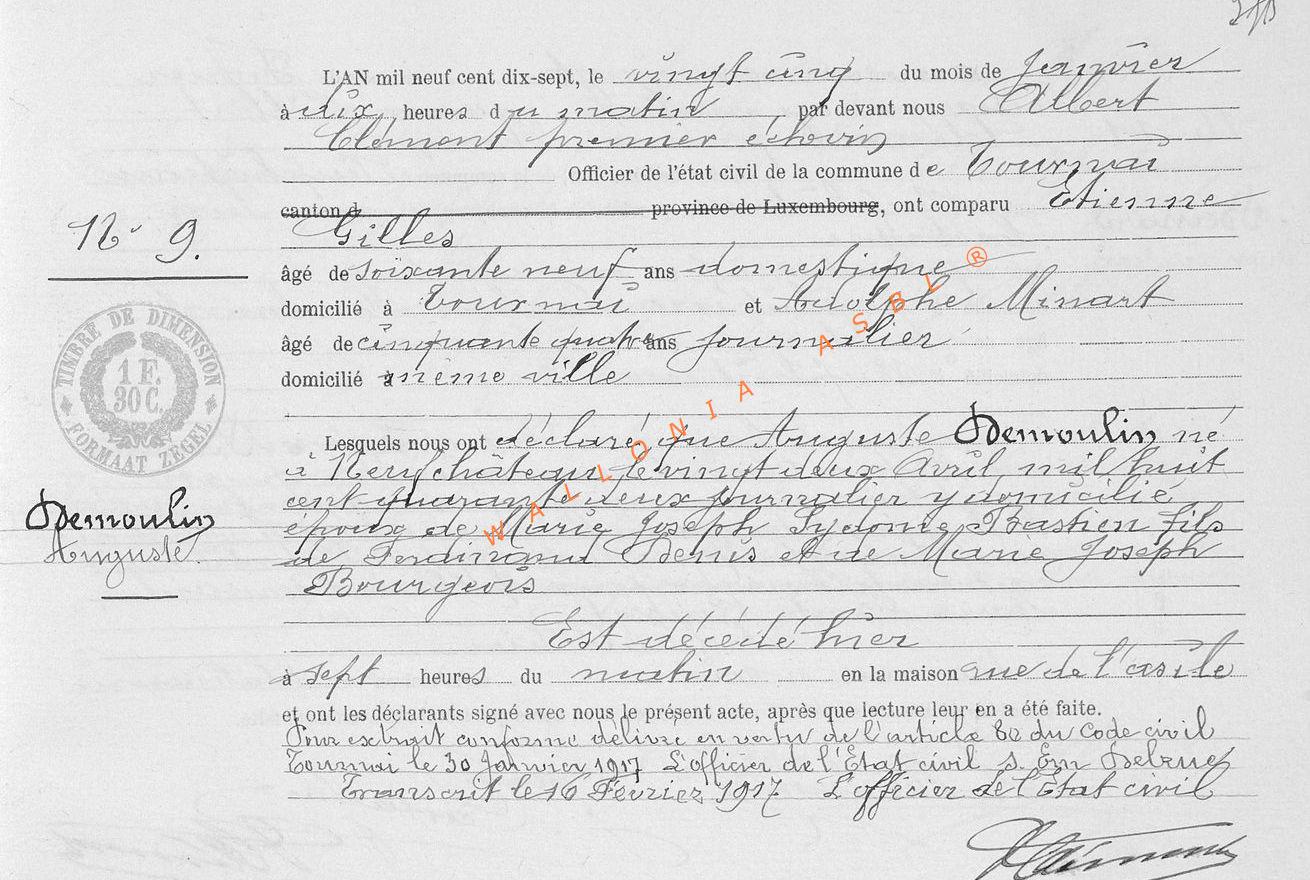 L'AN mil neuf cent dix-sept, le vingt cinq du mois de Janvier
à dix heures du matin par devant nous Albert
Clément premier échevin
Officier de l'état civil de la commune de Tournai
canton d province de Luxembourg, ont comparu Etienne
Gilles
N° 9.
âgé de soixante neuf ans domestique
domicilié à Tournai et Adolphe Minart
âgé de cinquante quatre ans journalier
domicilié même ville
TIMBRE DE DIMENSION
1 F.
30 C.
FORMAAT ZEGEL
Lesquels nous ont déclaré que Auguste Demoulin né
à Neufchâteau le vingt deux Avril mil huit
cent quarante deux journalier y domicilié
époux de Marie Joseph Sydonie Bastien fils
de Ferdinand Denis et de Marie Joseph
Bourgeois
Demoulin
Auguste.
Est décédé hier
à sept heures du matin en la maison rue de l'asile
et ont les déclarants signé avec nous le présent acte, après que lecture leur en a été faite.
Pour extrait conforme délivré en vertu de l'article 80 du Code civil
Tournai le 30 Janvier 1917 L'officier de l'Etat civil s. Em
Transcrit le 16 Février 1917 L'officier de l'Etat civil
WALLONIA ASBL ®